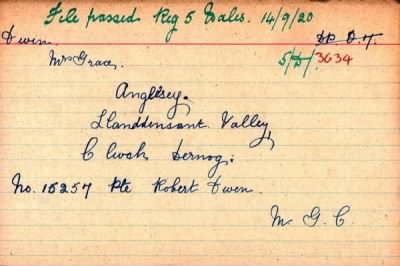 File passed Reg 5 Wales. 14/9/20
Owen SP. D.T.
Mrs Grace. 5/D/3634
Anglesey.
Llanddensant Valley,
C Iwah Sernog.
No. 15257 Pte Robert Owen.
M. G. C.